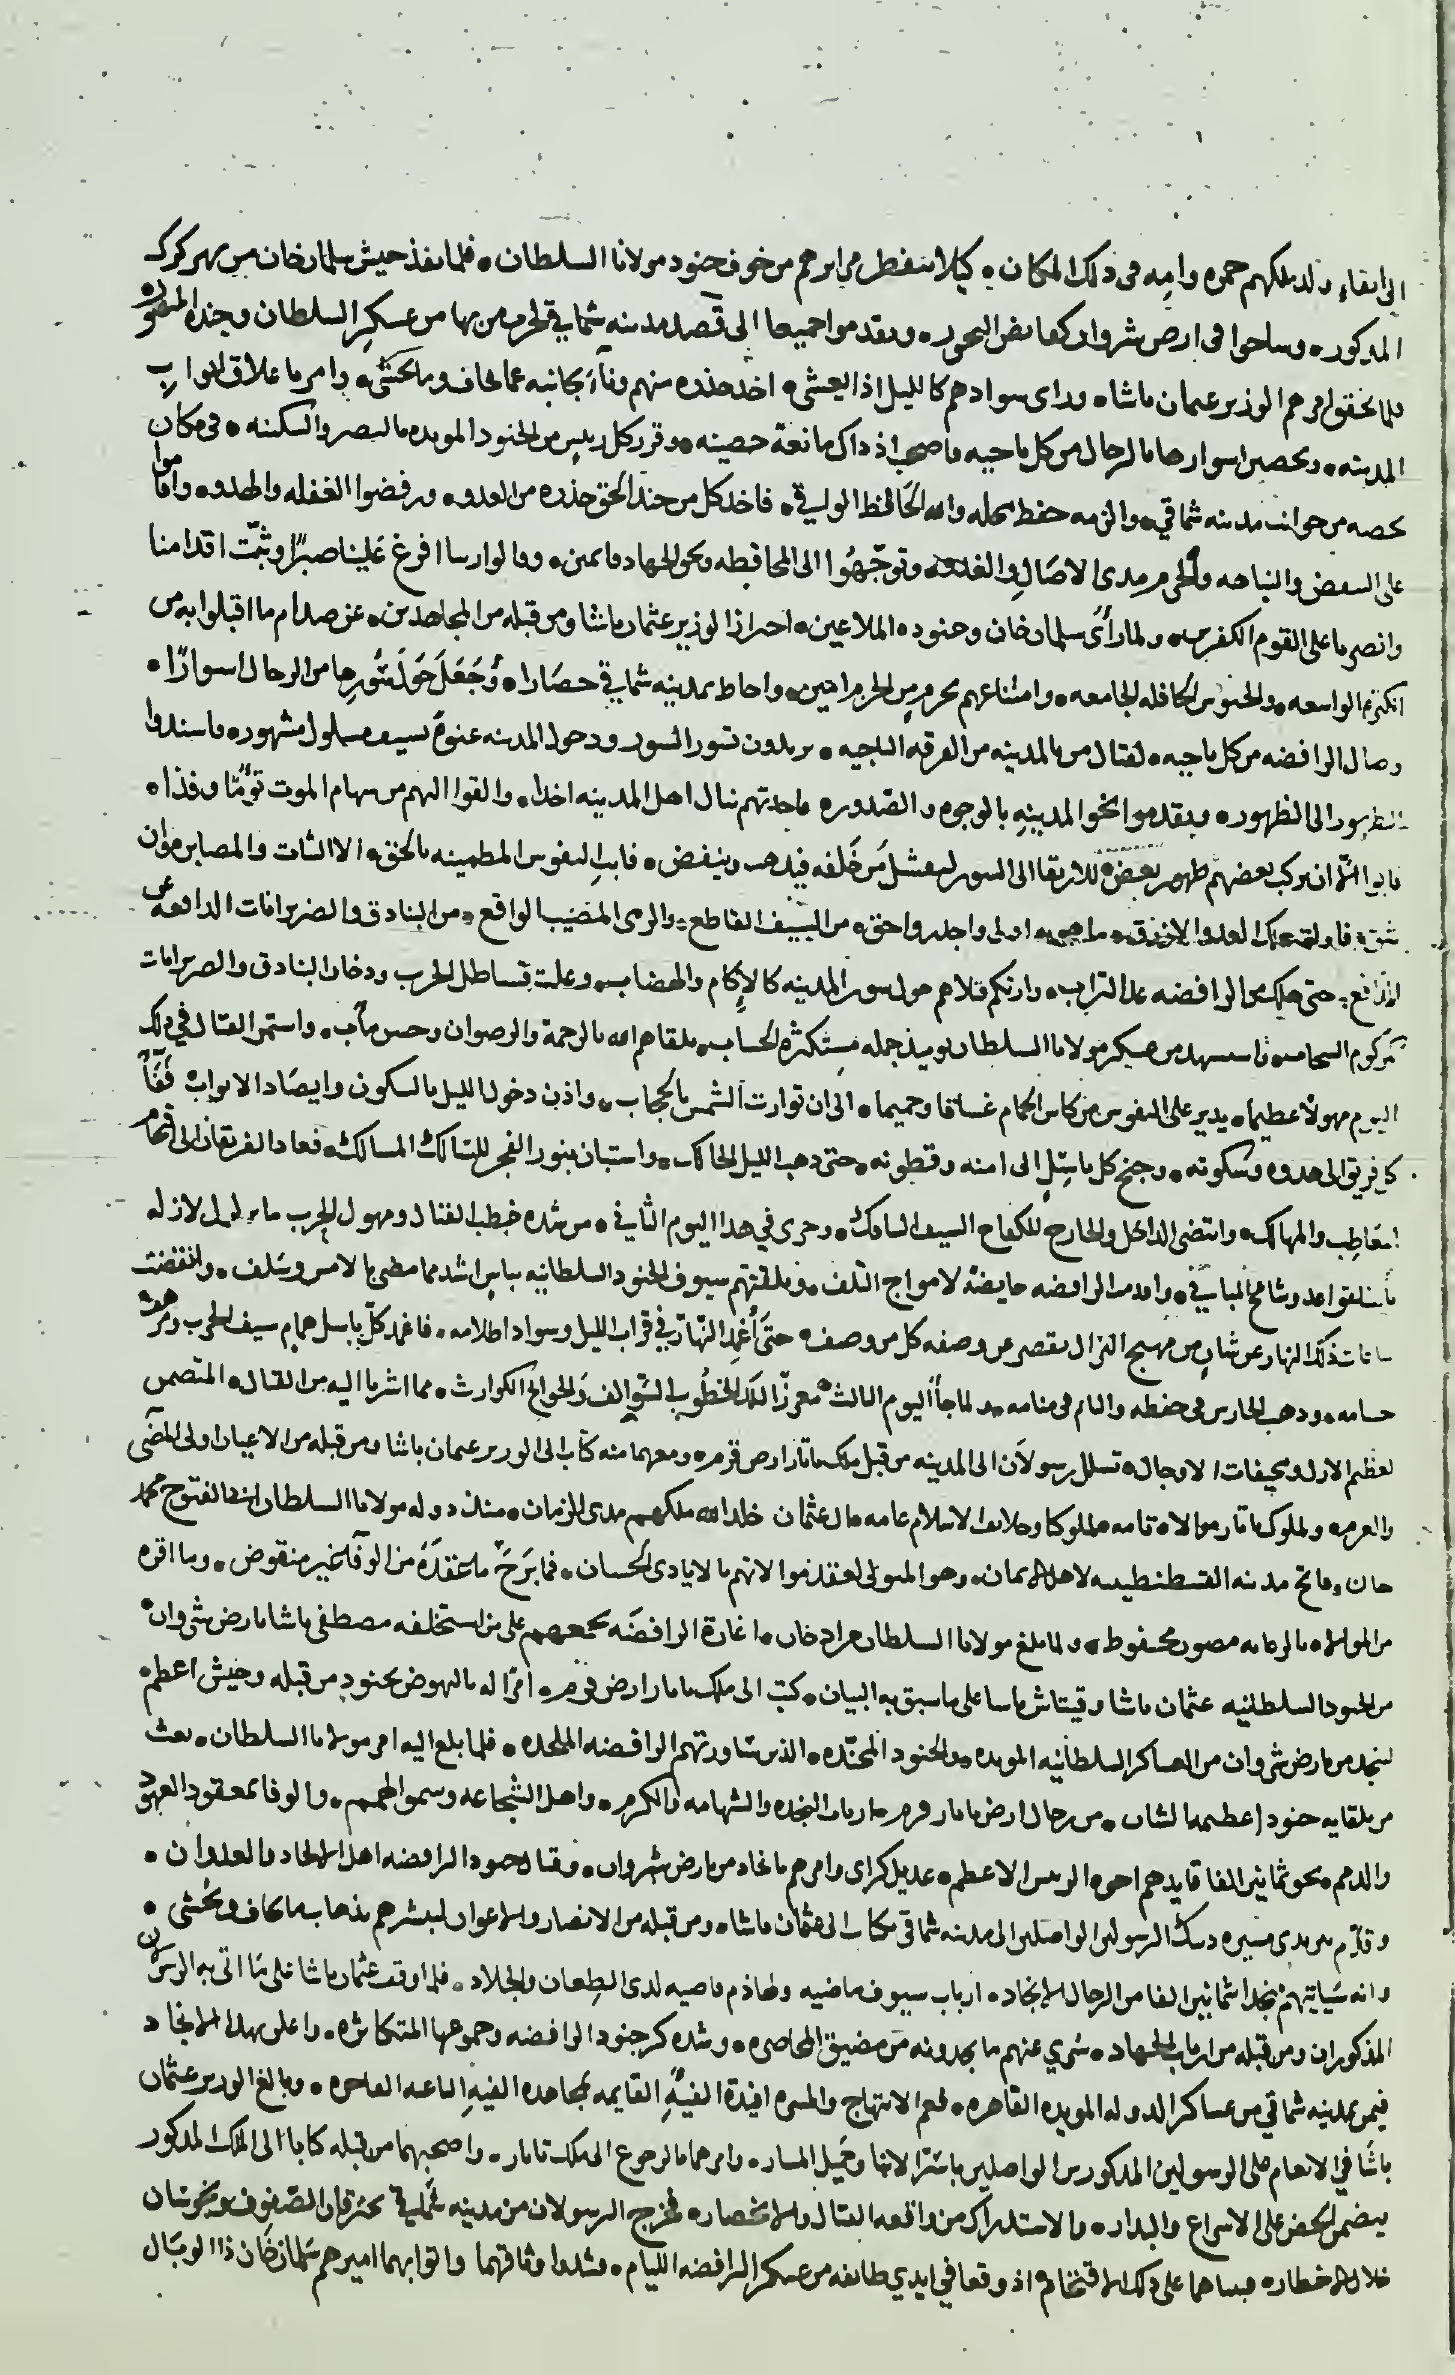 الى ابقاء ولد ملكهم حمزه وامه فى ذلك المكان كيلا ينفطر من ابرهم من خوف جنود مولانا السلطان فلما نفذ جيش سلمان خان من نهر كرك
المذكور وساحوا فى ارض شروان كفائض البحور وتقدموا جميعا الى قصد مدينه شماقي لحرب من بها من عسكر السلطان وجنده المنصوره
فلما تحقق امرهم الوزير عثمان باشا وراى سوادهم كالليل اذا يغشى اخذ حذره منهم ونأى بجانبه عما يخاف وما يخشى وامر باغلاق ابواب
المدينه وتحصين اسوارها بالرجال من كل ناحيه فاصبحت اذ ذاك مانعة حصينه وقرر كل رييس من الجنود المويده بالنصر والسكينه فى مكان
يخصه من جوانب مدينه شماقي والزمه حفظ محله والله الحافظ الواقي فاخذ كل من جند الحق حذره من العدو ورفضوا الغفله والهدو واقاموا
على التيقض والنباهه والحزم مدى الاصال والغدو وتوجهوا الى المحافظه ونحو الجهاد قائمين وقالوا ربنا افرغ علينا صبرًا وثبت اقدامنا
وانصرنا على القوم الكفرين ولما رأى سلمان خان وجنوده الملاعين احتراز الوزير عثمان باشا ومن قبله من المجاهدين عن صدام ما اقبلوا به من
الواسعه والجنود الحافله الجامعه وامتناعهم بحزم من الحزم امين واحاط بمدينه شماقي حصارا وجعل حول سورها من الرجال اسوارًا
وصال الرافضه من كل ناحيه لقتال من بالمدينه من الفرقه الناجيه يريدون تسور السور ودخول المدينه عنوة بسيف مسلول مشهور فاسندوا
الظهور الى الظهور وتقدموا نحو المدينه بالوجوه والصدور فاخذتهم نبال اهل المدينه اخذا والقوا اليهم من سهام الموت تؤمًا وفذا
فابوا الا ان يركب بعضهم ظهور بعض للارتقا الى السور من خلفه فيذهب وينفض فابت النفوس المطمينه بالحق الا الثبات والمصابره وان
العدو الازرق ما هو به اولى واجدر واحق من السيف القاطع والرمى المصيب الواقع من البنادق والضربزانات الدافعه عن
حتى هلك من الرافضه عدد التراب وارتكم قتلاهم حول سور المدينه كالاكام والهضاب وعلت قساطل الحرب ودخان البنادق والضربزانات
كركوم السحاب واستشهد من عسكر مولانا السلطان يوميذ جمله مستكثرة الحساب تلقاهم الله بالرحمة والرضوان وحسن مأب واستمر القتال فى ذلك
اليوم مهولا عظيما يدير على النفوس من كاس الحمام غساقا وحميما الى ان توارت الشمس بالحجاب واذن دخول الليل بالسكون وايصاد الابواب فَفَآءَ
كل فريق الى هدوه وسكوته وجنح كل باسل الى امنه وقطونه حتى ذهب الليل الحالك واستبان بنور الفجر للسالك المسالك فعاد الفريقان الى اقتحام
المعاطب والمهالك وانتضى الداخل والخارج للكفاح السيف السافك وجرى فى هذا اليوم الثاني من شده خطب القتال ومهول الحرب ما يزلزل لازله
قواعد وشامخ المباني واقدمت الرافضه خايضة لامواج التلف وتلقتهم سيوف الجنود السلطانيه بباس اشد مما مضى بالامس وسلف وانقضت
ساعات ذلك النهار عن شان من مهيج النزال يقصر عن وصفه كل من وصف حتى أُغمد النهار في قراب الليل وسواد اظلامه فاغمد كل باسل همام سيف الحرب ومرهف
حسامه وذهب الحارس فى حفظه والنائم فى منامه ولما جا اليوم الثالث معززًا لتلك الخطوب السوالف والحوادث الكوارث مما اشرنا اليه من القتال المتضمن
لعظيم الازل ومخيفات الاوجال تسلل رسولان الى المدينه من قبل ملك تاتار ارض قرم ومعهما منه كتاب الى الوزير عثمان باشا ومن قبله من الاعيان اولى المضى
والعزم ولملوك تاتار موالاة تامه لملوكنا وخلائف الاسلام عامه ال عثمان خلد الله ملكهم مدى الزمان منذ دوله مولانا السلطان ابي الفتوح محمد
خان وفاتح مدينه القسطنطينيه لاهل الايمان وهو المتولى لعقد موالاتهم بالايادى الحسان فما بَرح ما عقده من الوفاء غير منقوض وما اقره
من الموالاه بالرعايه مصون محفوظ ولما بلغ مولانا السلطان مراد خان اغارة الرافضه بجمعهم على من استخلفه مصطفى باشا بارض شروان
من الجنود السلطنيه عثمان باشا وقيتاش باشا على ما سبق به البيان كتب الى ملك تاتار ارض قرم امرا له بالنهوض بجنود من قبله وجيش اعظم
لينجد من بارض شروان من العساكر السلطانيه المويده والجنود المجنده الذين ساورتهم الرافضه الملحده فلما بلغ اليه امر مولانا السلطان بعث
من تلقايه جنود اعظيمه الشان من رجال ارض تاتار قرم ارباب النجده والشهامه والكرم واهل الشجاعه وسمو الهمم والوفا بمعقود العهود
والذمم نحو ثمانين الفا قايدهم اخوه الرييس الاعظم عديل كراى وامرهم بانجاد من بارض شروان وقتال جنود الرافضه اهل الالحاد والعدوان
وقدّم بين يدى مسيره ذينك الرسولين الواصلين الى مدينه شماقى بكتاب الى عثمان باشا ومن قبله من الانصار والاعوان ليبشرهم بذهاب ما يخاف ويخشى
وانه سياتيهم نجدا ثمانين الفا من الرجال الانجاد ارباب سيوف ماضيه ولهاذم قاصيه لدى الطعان والجلاد فلما وقف عثمان باشا على ما اتى به الرسولان
المذكوران ومن قبله من ارباب الجهاد سُري عنهم ما يجدونه من مضيق المحاصره وشده كر جنود الرافضه وجموعها المتكاثره واعلن بهذا الانجاد
فيمن بمدينه شماقي من عساكر الدوله المويده القاهره فعم الابتهاج والمسره افيدة الفيةِ القايمه بمجاهده الفيه الباغيه الفاجره وبالغ الوزير عثمان
باشا في الانعام على الرسولين المذكورين الواصلين باسرّ الانبا وجميل المسار وامرهما بالرجوع الى ملك تاتار واصحبهما من قبله كتابا الى الملك المذكور
يتضمن الحض على الاسراع والبدار والاستدراك من واقعه القتال والانحصار فخرج الرسولان من مدينه شماقي يخترقان الصفوف ويجوسان
خلال الاخطار فبيناهما على ذلك الاقتحام اذ وقعا في ايدي طائفه من عسكر الرافضه الليام وشدوا وثاقهما واتوا بهما اميرهم سلمان خان ذا الوبال